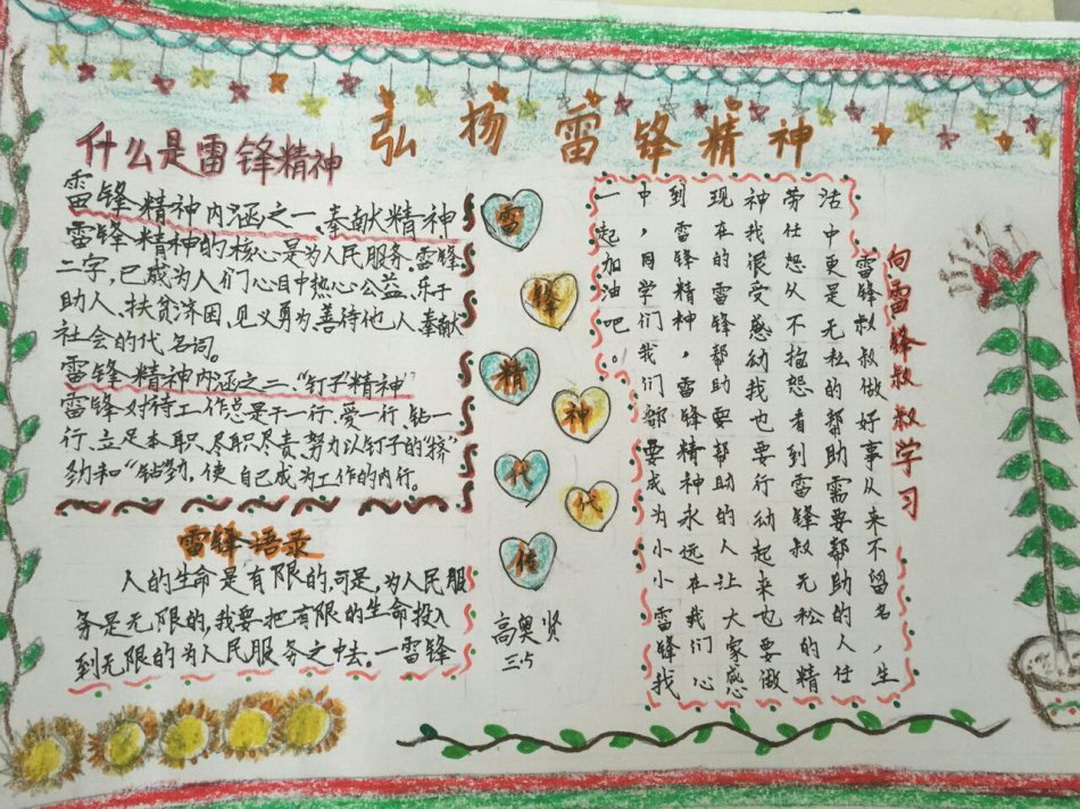 弘扬雷锋精神
什么是雷锋精神
雷锋精神内涵之一.奉献精神
雷锋精神的核心是为人民服务.雷锋
二字,已成为人们心目中热心公益、乐于
助人、扶贫济困、见义勇为、善待他人、奉献
社会的代名词。
雷锋精神内涵之二."钉子"精神"
雷锋对待工作总是干一行.爱一行、钻一
行、立足本职、尽职尽责、努力以钉子的"挤"
劲和"钻"劲.使自己成为工作的内行。
雷锋语录
人的生命是有限的,可是,为人民服
务是无限的,我要把有限的生命投入
到无限的为人民服务之中去。一雷锋
雷
锋
精
神
代
代
传
高奥贤
三.5
向雷锋叔叔学习
雷锋叔叔做好事从来不留名，生
活中更是无私的帮助需要帮助的人任
劳任怨从不抱怨看到雷锋叔无松的精
神我很受感动我也要行动起来也要做
现在的雷锋帮助要帮助的人让大家感
到雷锋精神，雷锋精神永远在我们心
中，同学们我们都要成为小小雷锋我
一起加油吧。